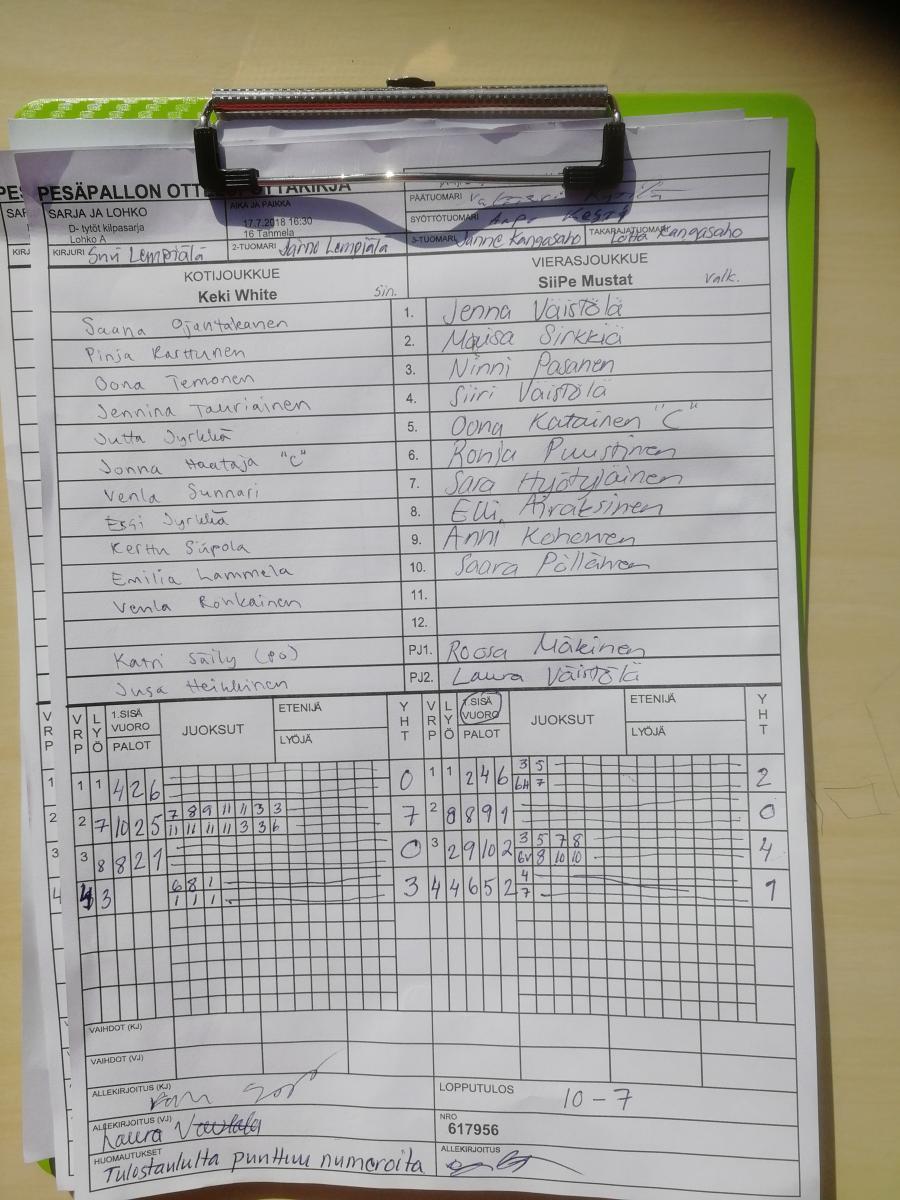 PESÄPALLON OTT
PÄÄTUOMARI
SARJA JA LOHKO
AIKA JA PAIKKA
SYÖTTÖTUOMARI
D- tytöt kilpasarja
17.7.2018 16:30
Lohko A
16 Tanmela
3-TUOMARI Janne Kangasaho TAKARAJATUOMARI Lotta Kangasaho
KIRJURI Suvi Lempiälä 2-TUOMARI Janne Lempiälä
KOTIJOUKKUE VIERASJOUKKUE
Keki White Sin. SiiPe Mustat valk.
Saana Ojantakanen 1. Jenna Väistölä
Pinja Karttunen 2. Maisa Sirkkiä
Oona Temonen 3. Ninni Pasanen
Jennina Tauriainen 4. Siiri Väistölä
Jutta Jyrkkä 5. Oona Katainen "C"
Jonna Haataja "C" 6. Ronja Puustinen
Venla Sunnari 7. Sara Hyötyläinen
Essi Jyrkkä 8. Elli Airaksinen
Kerttu Siipola 9. Anni Kohonen
Emilia Lammela 10. Saara Pöllänen
Venla Ronkainen 11.
12.
Katri Säily (PO) PJ1. Roosa Mäkinen
Jusa Heikkinen PJ2. Laura Väistölä
VRP LYÖ 1.SISÄ VUORO PALOT JUOKSUT ETENIJÄ LYÖJÄ YHT VRP LYÖ 1.SISÄ VUORO PALOT JUOKSUT ETENIJÄ LYÖJÄ YHT
1 1 4 2 6 0 1 1 2 4 6 3 5 2
6H 7
2 7 10 2 5 7 8 9 11 11 3 3 7 2 8 8 9 1 0
11 11 11 11 3 3 6
3 8 8 2 1 0 3 2 9 10 2 3 5 7 8 4
6V 8 10 10
4 3 6 8 1 3 4 4 6 5 2 4 1
1 1 1 7
VAIHDOT (KJ)
VAIHDOT (VJ)
ALLEKIRJOITUS (KJ) LOPPUTULOS 10-7
ALLEKIRJOITUS (VJ) Laura NRO
617956
HUOMAUTUKSET Tulostaululta puuttuu numeroita ALLEKIRJOITUS